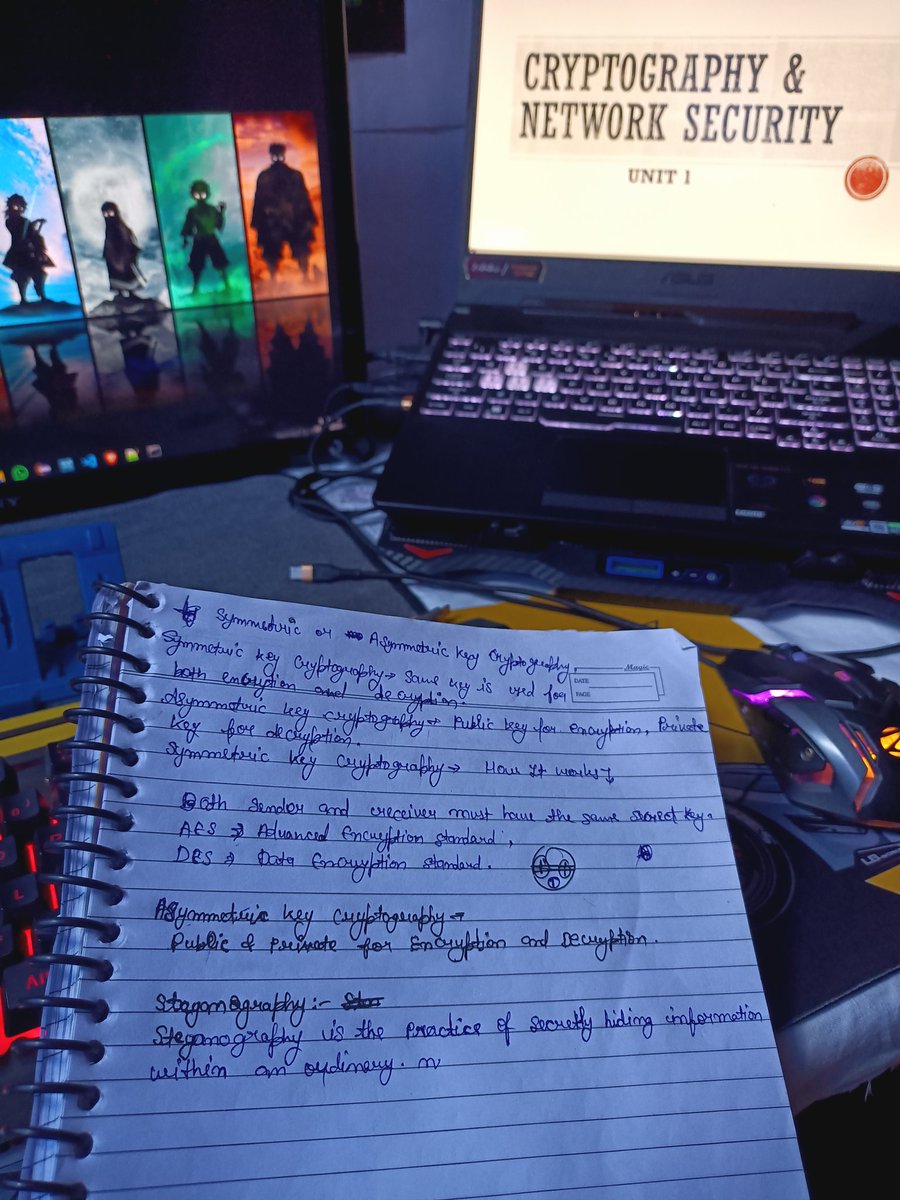 CRYPTOGRAPHY &
NETWORK SECURITY
UNIT 1
ASUS
Symmetric or Asymmetric Key Cryptography.
Magic
DATE
PAGE
Symmetric key Cryptography → Same key is used for
both encryption and decryption.
Asymmetric key cryptography → Public key for encryption, Private
key for decryption.
Symmetric key cryptography → How It works ↓
Both sender and receiver must have the same secret key.
AES → Advanced Encryption standard,
DES → Data Encryption standard.
Asymmetric key cryptography →
Public & Private for Encryption and Decryption.
Steganography :-
Steganography is the Practice of secretly hiding information
within an ordinary.